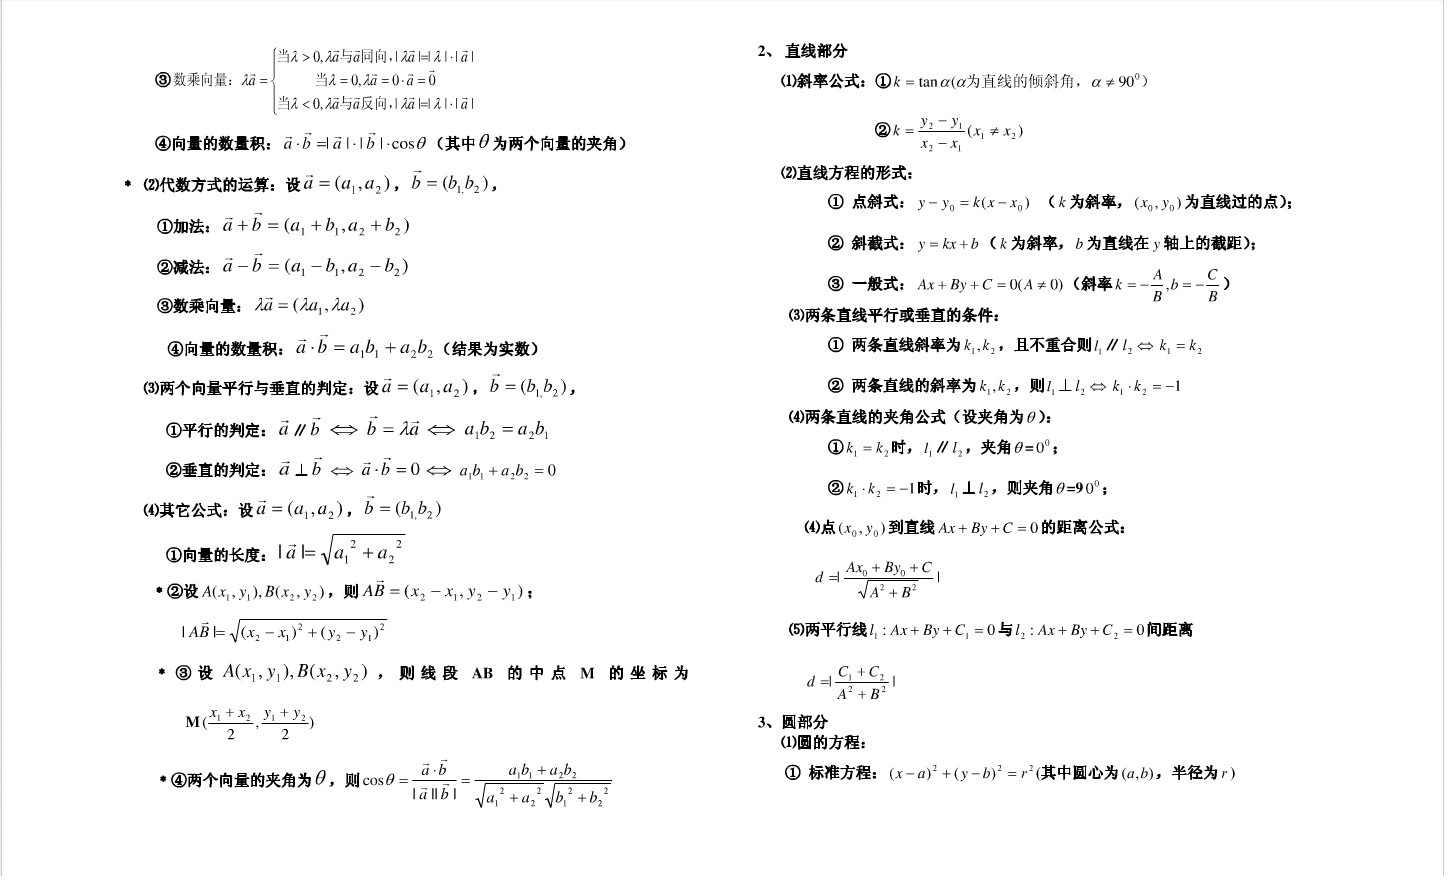 ③数乘向量：λa⃗ = { 当λ > 0, λa⃗与a⃗同向, | λa⃗ |=| λ | · | a⃗ |
当λ = 0, λa⃗ = 0 · a⃗ = 0⃗
当λ < 0, λa⃗与a⃗反向, | λa⃗ |=| λ | · | a⃗ |
④向量的数量积：a⃗ · b⃗ =| a⃗ | · | b⃗ | · cosθ（其中θ为两个向量的夹角）
* ⑵代数方式的运算：设a⃗ = (a₁, a₂)，b⃗ = (b₁,b₂)，
①加法：a⃗ + b⃗ = (a₁ + b₁, a₂ + b₂)
②减法：a⃗ − b⃗ = (a₁ − b₁, a₂ − b₂)
③数乘向量：λa⃗ = (λa₁, λa₂)
④向量的数量积：a⃗ · b⃗ = a₁b₁ + a₂b₂（结果为实数）
⑶两个向量平行与垂直的判定：设a⃗ = (a₁, a₂)，b⃗ = (b₁,b₂)，
①平行的判定：a⃗ ∥ b⃗ ⇔ b⃗ = λa⃗ ⇔ a₁b₂ = a₂b₁
②垂直的判定：a⃗ ⊥ b⃗ ⇔ a⃗ · b⃗ = 0 ⇔ a₁b₁ + a₂b₂ = 0
⑷其它公式：设a⃗ = (a₁, a₂)，b⃗ = (b₁,b₂)
①向量的长度：| a⃗ |= √(a₁² + a₂²)
* ②设A(x₁, y₁), B(x₂, y₂)，则AB⃗ = (x₂ − x₁, y₂ − y₁)；
| AB⃗ |= √((x₂ − x₁)² + (y₂ − y₁)²)
* ③设 A(x₁, y₁), B(x₂, y₂)，则线段 AB 的中点 M 的坐标为
M((x₁ + x₂)/2, (y₁ + y₂)/2)
* ④两个向量的夹角为θ，则cosθ = (a⃗ · b⃗)/(| a⃗ || b⃗ |) = (a₁b₁ + a₂b₂)/(√(a₁² + a₂²) √(b₁² + b₂²))
2、 直线部分
⑴斜率公式：①k = tanα(α为直线的倾斜角，α ≠ 90⁰）
②k = (y₂ − y₁)/(x₂ − x₁) (x₁ ≠ x₂)
⑵直线方程的形式：
① 点斜式：y − y₀ = k(x − x₀) （k为斜率，(x₀, y₀)为直线过的点）；
② 斜截式：y = kx + b（k为斜率，b为直线在y轴上的截距）；
③ 一般式：Ax + By + C = 0(A ≠ 0)（斜率k = −A/B, b = −C/B）
⑶两条直线平行或垂直的条件：
① 两条直线斜率为k₁, k₂，且不重合则l₁ ∥ l₂ ⇔ k₁ = k₂
② 两条直线的斜率为k₁, k₂，则l₁ ⊥ l₂ ⇔ k₁ · k₂ = −1
⑷两条直线的夹角公式（设夹角为θ）：
①k₁ = k₂时，l₁ ∥ l₂，夹角θ=0⁰；
②k₁ · k₂ = −1时，l₁ ⊥ l₂，则夹角θ=90⁰；
⑷点(x₀, y₀)到直线Ax + By + C = 0的距离公式：
d =| (Ax₀ + By₀ + C)/√(A² + B²) |
⑸两平行线l₁ : Ax + By + C₁ = 0与l₂ : Ax + By + C₂ = 0间距离
d =| (C₁ + C₂)/(A² + B²) |
3、圆部分
⑴圆的方程：
① 标准方程：(x − a)² + (y − b)² = r²(其中圆心为(a, b)，半径为r)